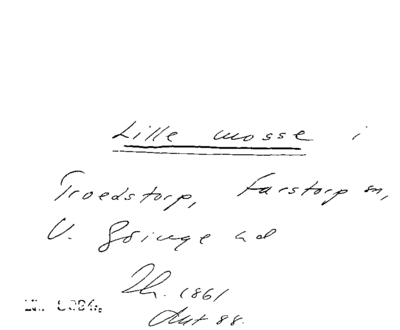 Lille mosse i
Troedstorp, Farstorp sn,
V. Göinge hd
Th. 1861
Ant 88.